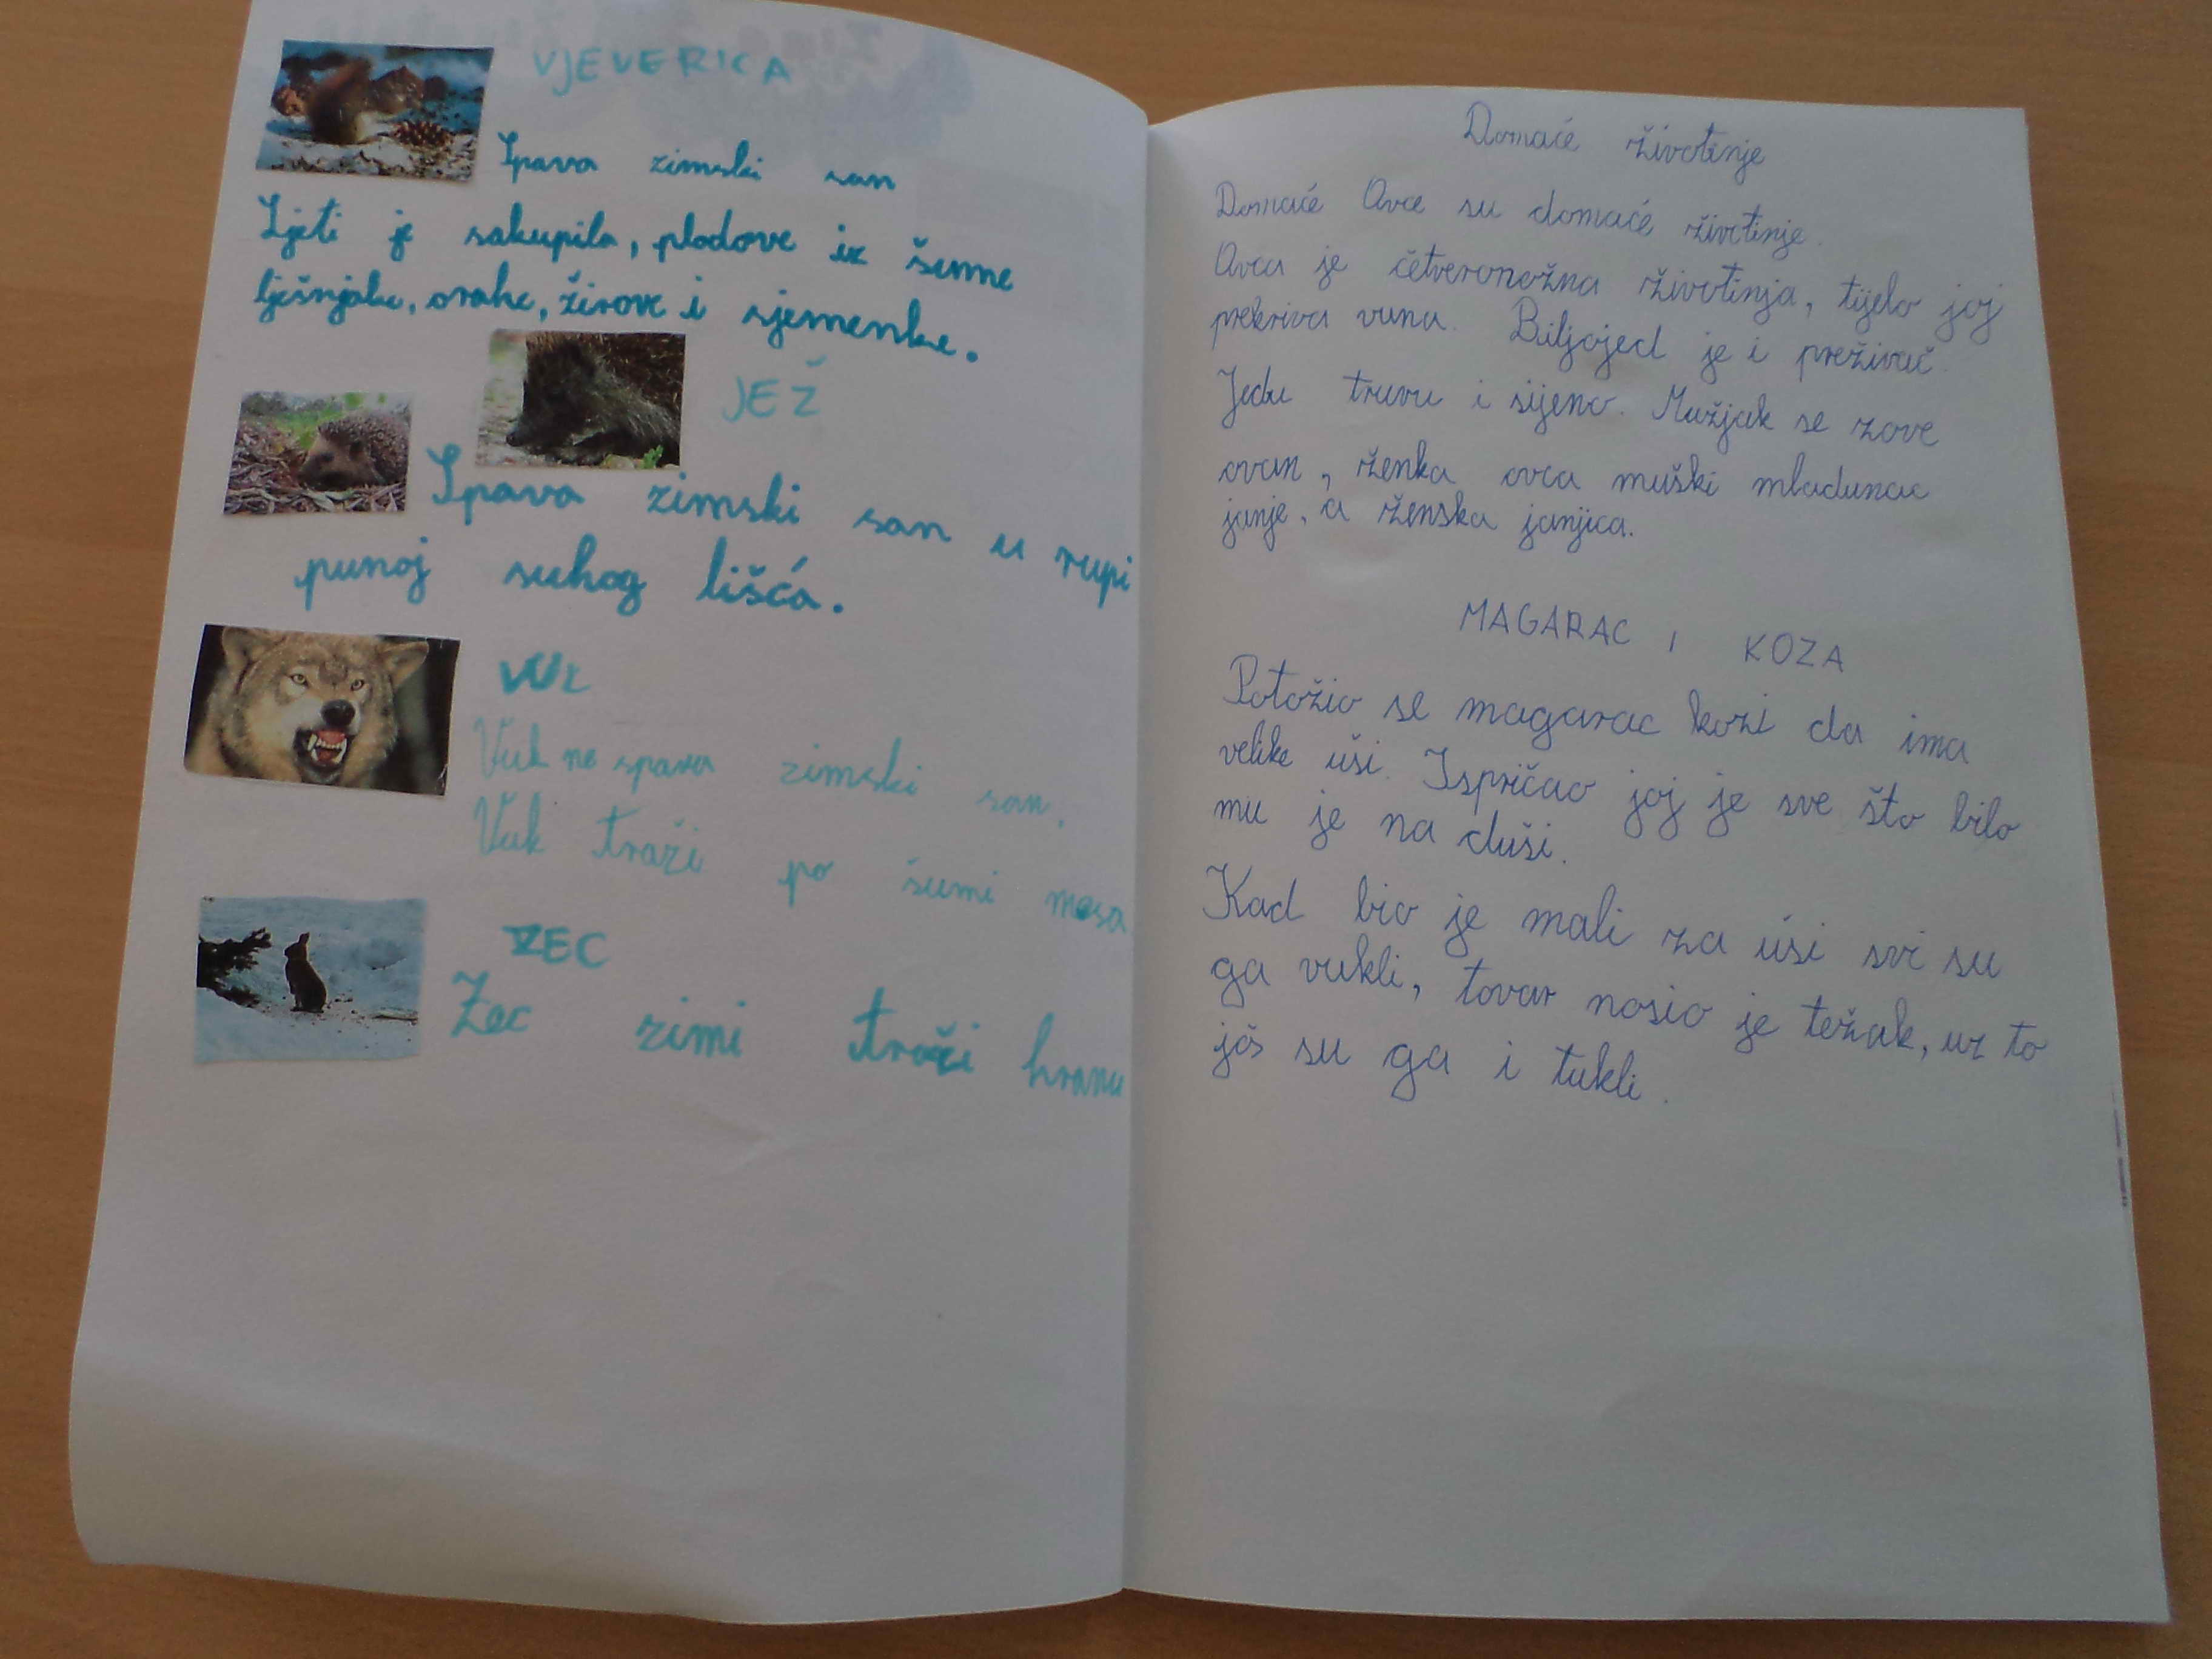 VJEVERICA
Spava zimski san
Ljeti je sakupila, plodove iz šume
lješnjake, orahe, žirove i sjemenke.
JEŽ
Spava zimski san u rupi
punoj suhog lišća.
Vuk ne spava zimski san.
Vuk traži po šumi mesa
ZEC
Zec zimi traži hranu
Domaće životinje
Domaće Ovce su domaće živtinje.
Ovca je četveronožna životinja, tijelo joj
prekriva vuna. Biljojed je i preživač.
Jedu travu i sijeno. Mužjak se zove
ovan, ženka ovca muški mladunac
janje, a ženska janjica.
MAGARAC I KOZA
Potožio se magarac kozi da ima
velike uši. Ispričao joj je sve što bilo
mu je na duši.
Kad bio je mali za uši svi su
ga vukli, tovar nosio je težak, uz to
još su ga i tukli.